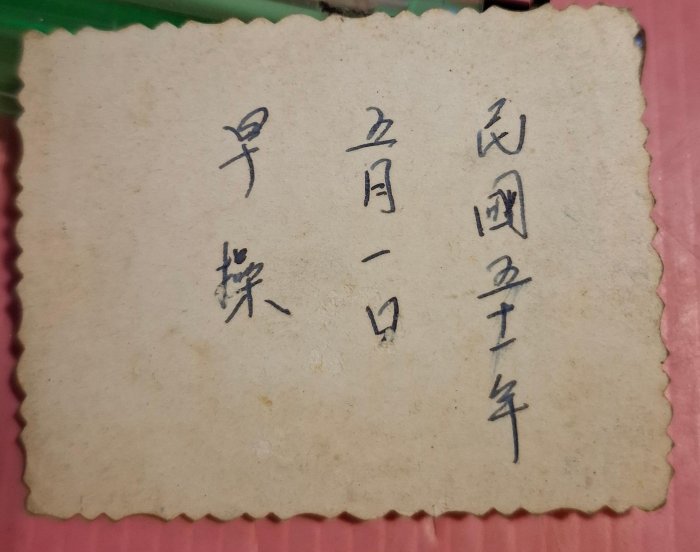 民國五十一年
五月一日
早操